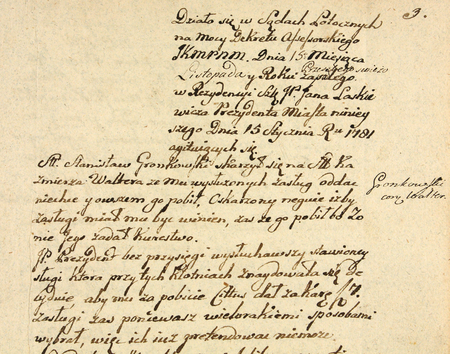 3.
Działo się w Sądach Potocznych
na mocy Dekretu Assessorskiego
JKmPnm. Dnia 15 Miesiąca
Listopada y Roku Przeszłego świeżo zaszłego.
w Rezydencyi Szl. JP. Jana Laskie
wicza Prezydenta Miasta niniey
szego Dnia 15 Stycznia Ru 1781
agituiących się.
Stanisław Gronkowski skarżył się na Ka
zmierza Waltera że mu wysłużonych zasług oddać
niechce y owszem go pobił. Oskarżony neguie iżby
zasługi miał mu być winien, zaś że go pobił bo Żo
nie Jego zadał kurestwo.
Gronkowski
con. Walter.
JP. Prezydent bez przysięgi wysłuchawszy stawioney
sługi ktora przy tych kłotniach znaydowała się De
cyduie, aby mu za pobicie Citus dał za karę f. 7.
zasługi zaś ponieważ wielorakiemi sposobami
wybrał, więc ich iuż pretendować niemoże.